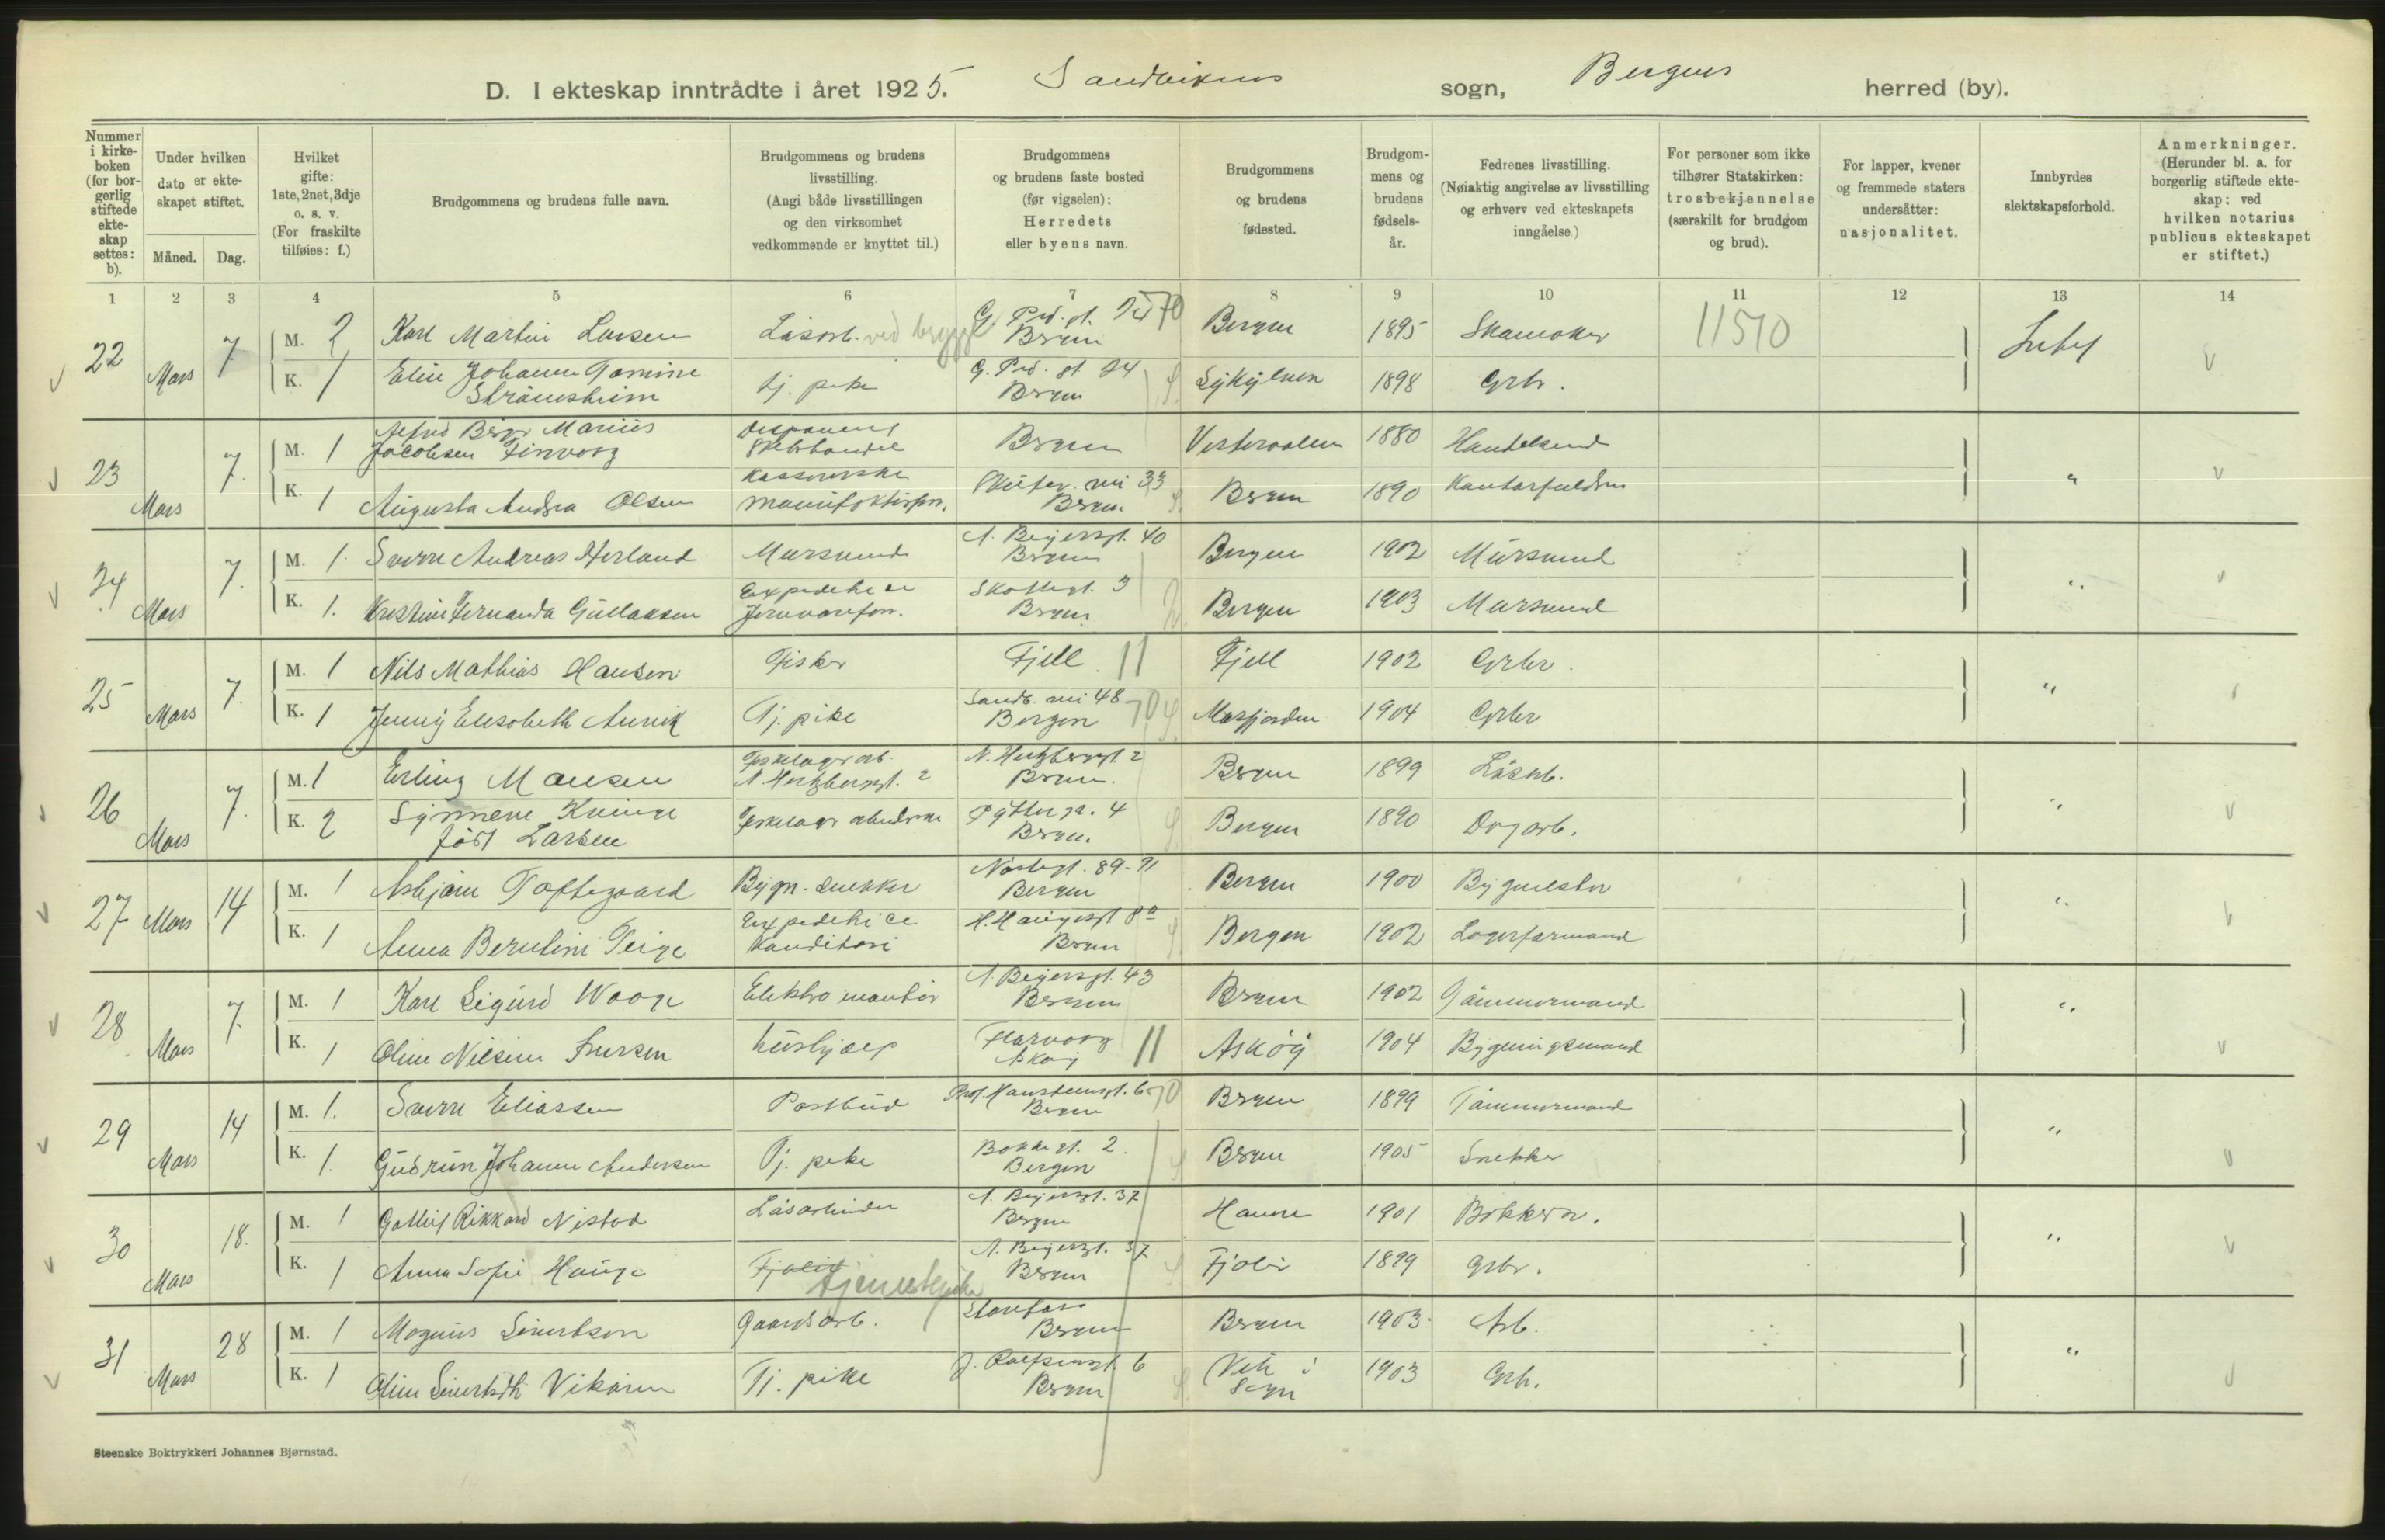 D. I ekteskap inntrådte i året 1925. Sandvikens sogn, Bergens herred (by).
Nummer i kirkeboken (for borgerlig stiftede ekteskap settes: b).
Under hvilken dato er ekteskapet stiftet.
Måned. Dag.
Hvilket gifte: 1ste, 2net, 3dje o. s. v. (For fraskilte tilføies: f.)
Brudgommens og brudens fulle navn.
Brudgommens og brudens livsstilling. (Angi både livsstillingen og den virksomhet vedkommende er knyttet til.)
Brudgommens og brudens faste bosted (før vigselen): Herredets eller byens navn.
Brudgommens og brudens fødested.
Brudgommens og brudens fødselsår.
Fedrenes livsstilling. (Nøiaktig angivelse av livsstilling og erhverv ved ekteskapets inngåelse.)
For personer som ikke tilhører Statskirken: trosbekjennelse (særskilt for brudgom og brud).
For lapper, kvener og fremmede staters undersåtter: nasjonalitet.
Innbyrdes slektskapsforhold.
Anmerkninger. (Herunder bl. a. for borgerlig stiftede ekteskap: ved hvilken notarius publicus ekteskapet er stiftet.)
1 2 3 4 5 6 7 8 9 10 11 12 13 14
22 Mars 7 M. 2 Karl Martin Larsen Løsarb. ved brygge G. Prd. gt. 24 70 Bergen Bergen 1895 Skomaker 11510 Intet
K. 1 Elin Johanne Tomine Strømsheim Tj. pike G. Prd. gt 24 Bergen Sykylven 1898 Grbr.
23 Mars 7. M. 1 Alfred Marius Jacobsen Finvoog Disponent Bergen Vesteraalen 1880 Handelsmd "
K. 1 Augusta Andrea Olsen Kassererske Manufakturforr. 33 Bergen Bergen 1890
24 Mars 7. M. 1. Sverre Andreas Herland Mursvend A. Beyersgt. 40 Bergen Bergen 1902 Mursvend "
K. 1. Kristine Fernanda Gullaksen Expeditrice Jernvareforr. Skottegt. 3 Bergen Bergen 1903 Mursvend
25 Mars 7. M. 1 Nils Mathias Hansen Fisker Fjell 11 Fjell 1902 Grbr. "
K. 1 Jenny Elisabeth Anvik Tj. pike Sandv. vei 48 Bergen 70 Masfjorden 1904 Grbr
26 Mars 7. M. 1 Erling Monsen N. Hertzbergsgt. 2 N. Hertzbergsgt 2 Bergen. Bergen 1899 Løsarb. "
K. 2 Synneve Kvinge født Larsen Pyttergt. 4 Bergen. Bergen 1890 Dagarb.
27 Mars 14 M. 1 Asbjørn Toftegaard Bygn. snekker Nostegt. 89-91 Bergen Bergen 1900 Bygmester "
K. 1 Anna Berntine Teige Expeditrice Konditori H. Haugesgt 8a Bergen Bergen 1902 Lagerformand
28 Mars 7. M. 1 Karl Sigurd Waage Elektromontør A. Beyersgt. 43 Bergen Bergen 1902 Tømmermand "
K. 1 Oline Nilsine Iversen Hushjælp Florvaag Askøy 11 Askøy 1904 Bygningsmand
29 Mars 14 M. 1. Sverre Eliassen Postbud Prof. Hansteensgt. 6 70 Bergen Bergen 1899 Tømmermand "
K. 1. Gudrun Johanne Andersen Tj. pike Bakkegt. 2. Bergen Bergen 1905 Snekker
30 Mars 18. M. 1 Rikkard Nistad Løsarbeider A. Beyersgt. 37 Bergen Hamre 1901 Bøkker. "
K. 1 Anna Sofie Hauge Fjaler tjenestepike A. Beyersgt. 37 Bergen Fjaler 1899 Grbr.
31 Mars 28 M. 1 Magnus Sivertsen Gaardsarb. Bergen Bergen 1903 Arb. "
K. 1 Oline Sivertsdtr Vikøren Tj. pike J. Rolfsensgt 6 Bergen Vik i Sogn 1903 Grbr.
Steenske Boktrykkeri Johannes Bjørnstad.